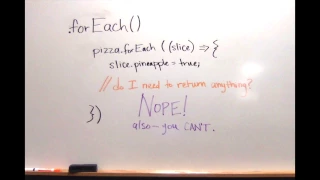 .forEach()
pizza.forEach ((slice) => {
slice.pineapple = true;
// do I need to return anything?
NOPE!
also - you CAN'T.
})